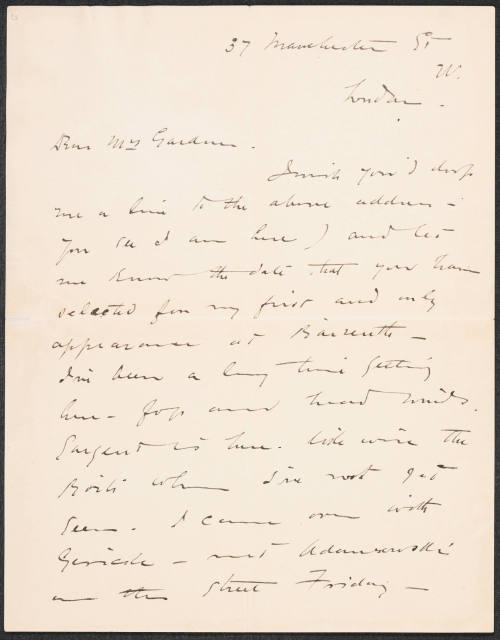 37 Manchester St
W.
London.
Dear Mrs Gardner.
I wish you'd drop
me a line to the above address -
you see I am here) and let
me know the date that you have
selected for my first and only
appearance at Baireuth -
I've been a long time getting
here - fogs and head winds.
Sargent is here. likewise the
Boits whom I've not yet
seen. I came over with
Gericke - met Adamowski
on the street Friday -